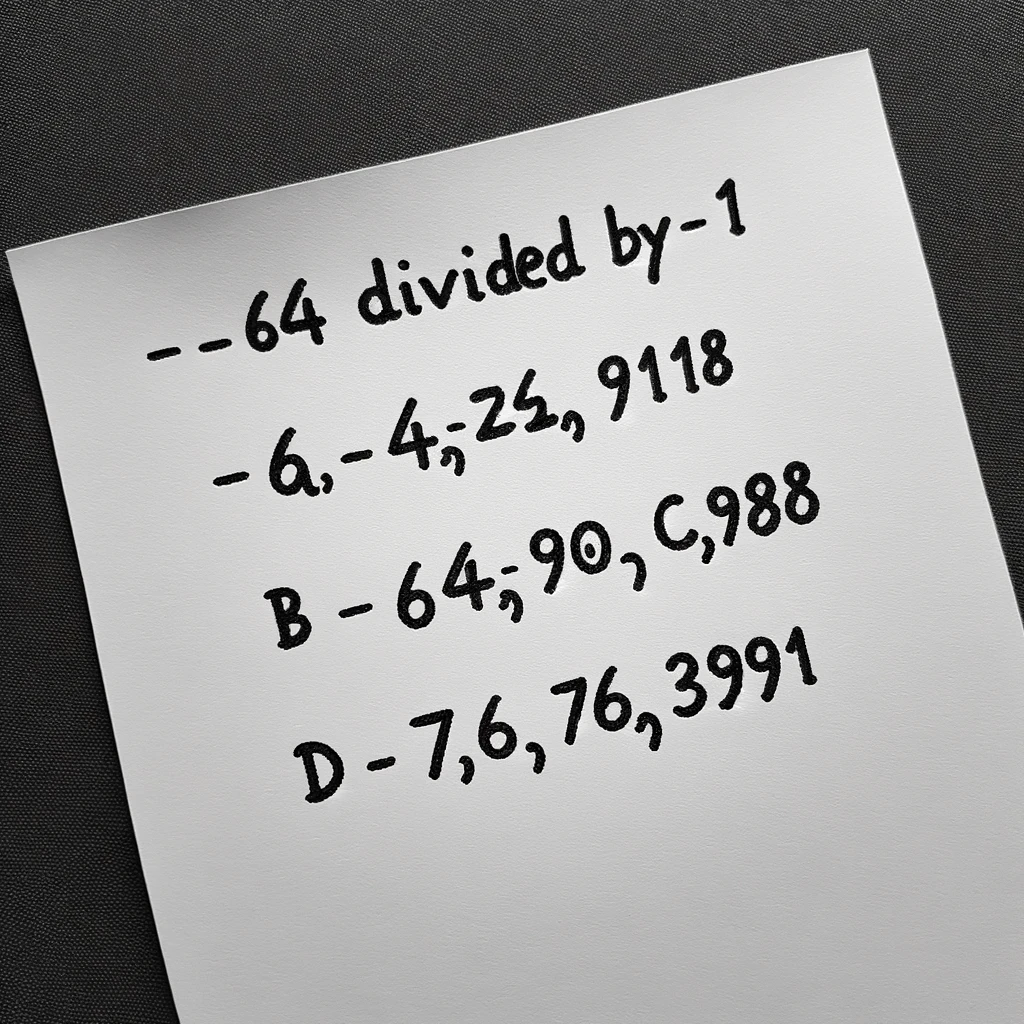 --64 divided by -1
-6,-4,-25, 9118
B - 64,-90, C,988
D - 7,6,76,3991